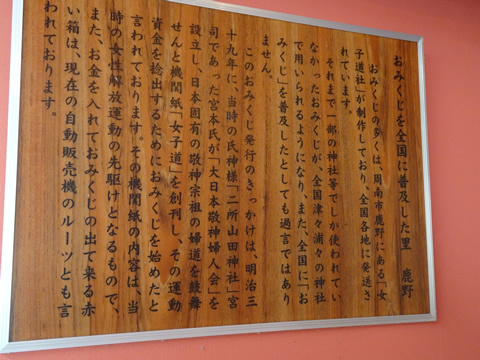 おみくじを全国に普及した里　鹿野
おみくじの多くは、周南市鹿野にある「女
子道社」が制作しており、全国各地に発送さ
れています。
それまで一部の神社等でしか使われてい
なかったおみくじが、全国津々浦々の神社
で用いられるようになり、また、全国に「お
みくじ」を普及したとしても過言ではあり
ません。
このおみくじ発行のきっかけは、明治三
十九年に、当時の氏神様「二所山田神社」宮
司であった宮本氏が「大日本敬神婦人会」を
設立し、日本固有の敬神宗祖の婦道を鼓舞
せんと機関紙「女子道」を創刊し、その運動
資金を捻出するためにおみくじを始めたと
言われております。その機関紙の内容は、当
時の女性解放運動の先駆けとなるもので、
また、お金を入れておみくじの出て来る赤
い箱は、現在の自動販売機のルーツとも言
われております。